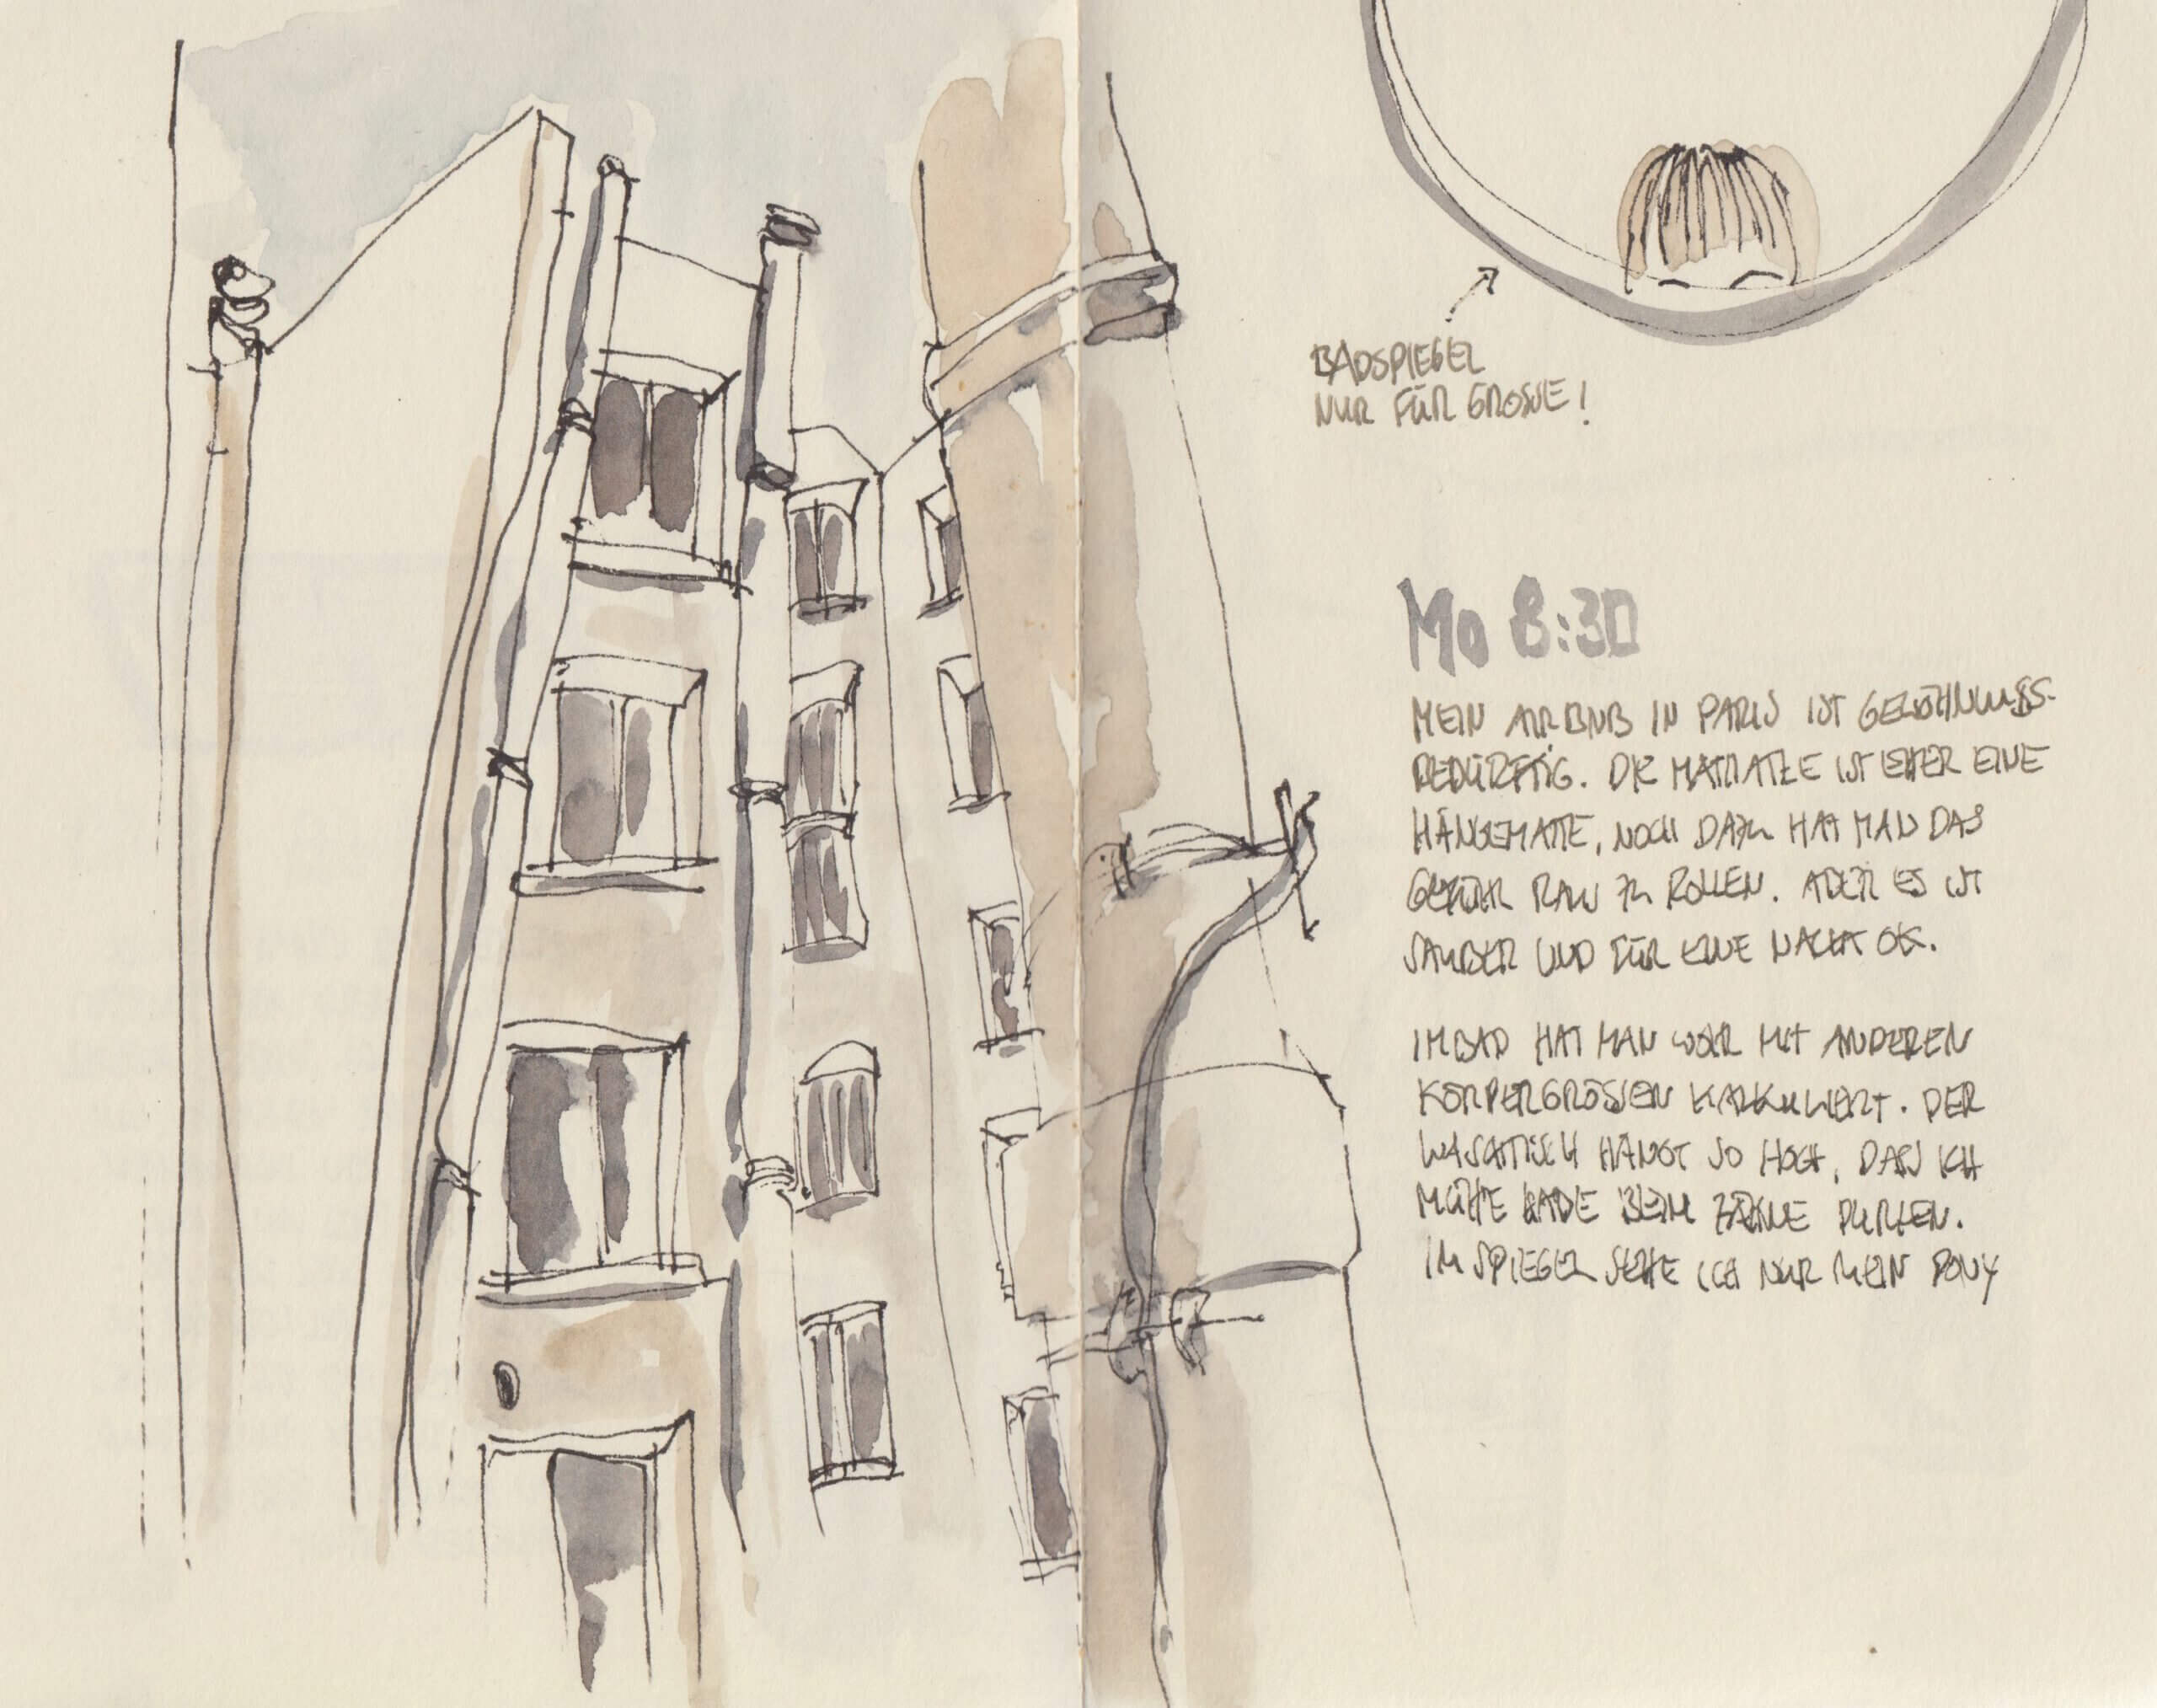 BADSPIEGEL
NUR FÜR GROSSE!
Mo 8:30
MEIN AIRBNB IN PARIS IST GEWÖHNUNGS-
BEDÜRFTIG. DIE MATRATZE IST EHER EINE
HÄNGEMATTE, NOCH DAZU HAT MAN DAS
GEFÜHL RAUS ZU ROLLEN. ABER ES IST
SAUBER UND FÜR EINE NACHT OK.
IM BAD HAT MAN WOHL MIT ANDEREN
KÖRPERGRÖSSEN KALKULIERT. DER
WASCHTISCH HÄNGT SO HOCH, DASS ICH
MÜHE HABE BEIM ZÄHNE PUTZEN.
IM SPIEGEL SEHE ICH NUR MEIN PONY